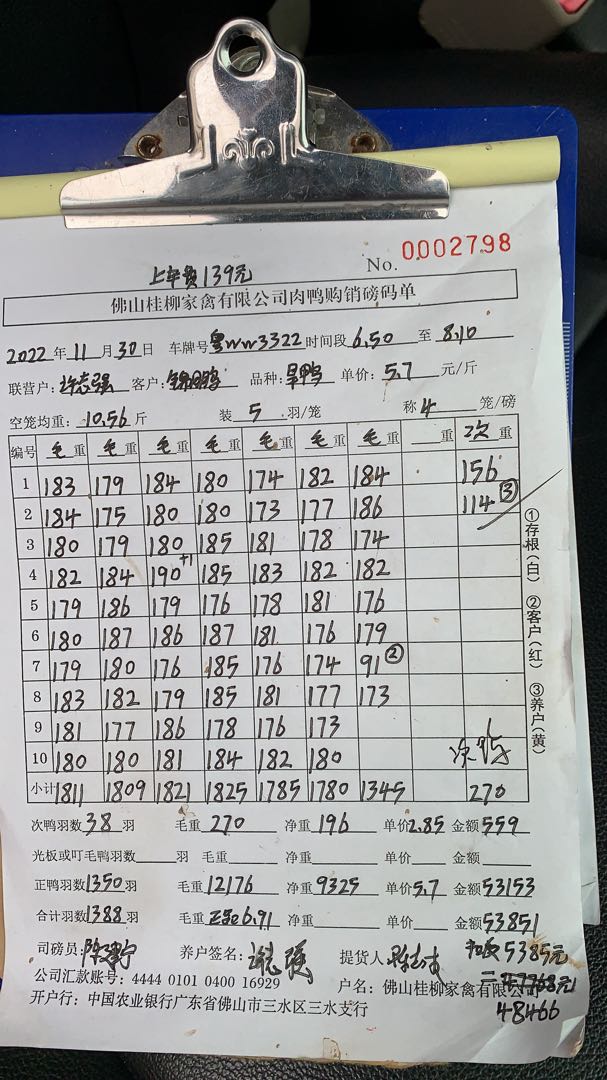 No. 0002798
上车费139元
佛山桂柳家禽有限公司肉鸭购销磅码单
2022年11月30日 车牌号粤WW3322时间段6.50至8.10
联营户: 许志强 客户: 锦鹏 品种: 旱鸭 单价: 5.7 元/斤
空笼均重: 10.56 斤 装 5 羽/笼 称 4 笼/磅
编号 毛重 毛重 毛重 毛重 毛重 毛重 毛重 重 次重
1 183 179 184 180 174 182 184 156
2 184 175 180 180 173 177 186 114③
3 180 179 180 185 181 178 174
4 182 184 190+1 185 183 182 182
5 179 186 179 176 178 181 176
6 180 187 186 187 181 176 179
7 179 180 176 185 176 174 91②
8 183 182 179 185 181 177 173
9 181 177 186 178 176 173
10 180 180 181 184 182 180 次鸭
小计 1811 1809 1821 1825 1785 1780 1345 270
①存根(白) ②客户(红) ③养户(黄)
次鸭羽数38羽 毛重 270 净重 196 单价2.85 金额559
光板或叮毛鸭羽数 羽 毛重 净重 单价 金额
正鸭羽数1350羽 毛重12176 净重9325 单价5.7 金额53153
合计羽数1388羽 毛重正品6.91 净重 单价 金额53851
司磅员: 养户签名: 许志强 提货人 5385元
公司汇款账号: 4444 0101 0400 16929 户名: 佛山桂柳家禽有限公司
开户行: 中国农业银行广东省佛山市三水区三水支行 48466